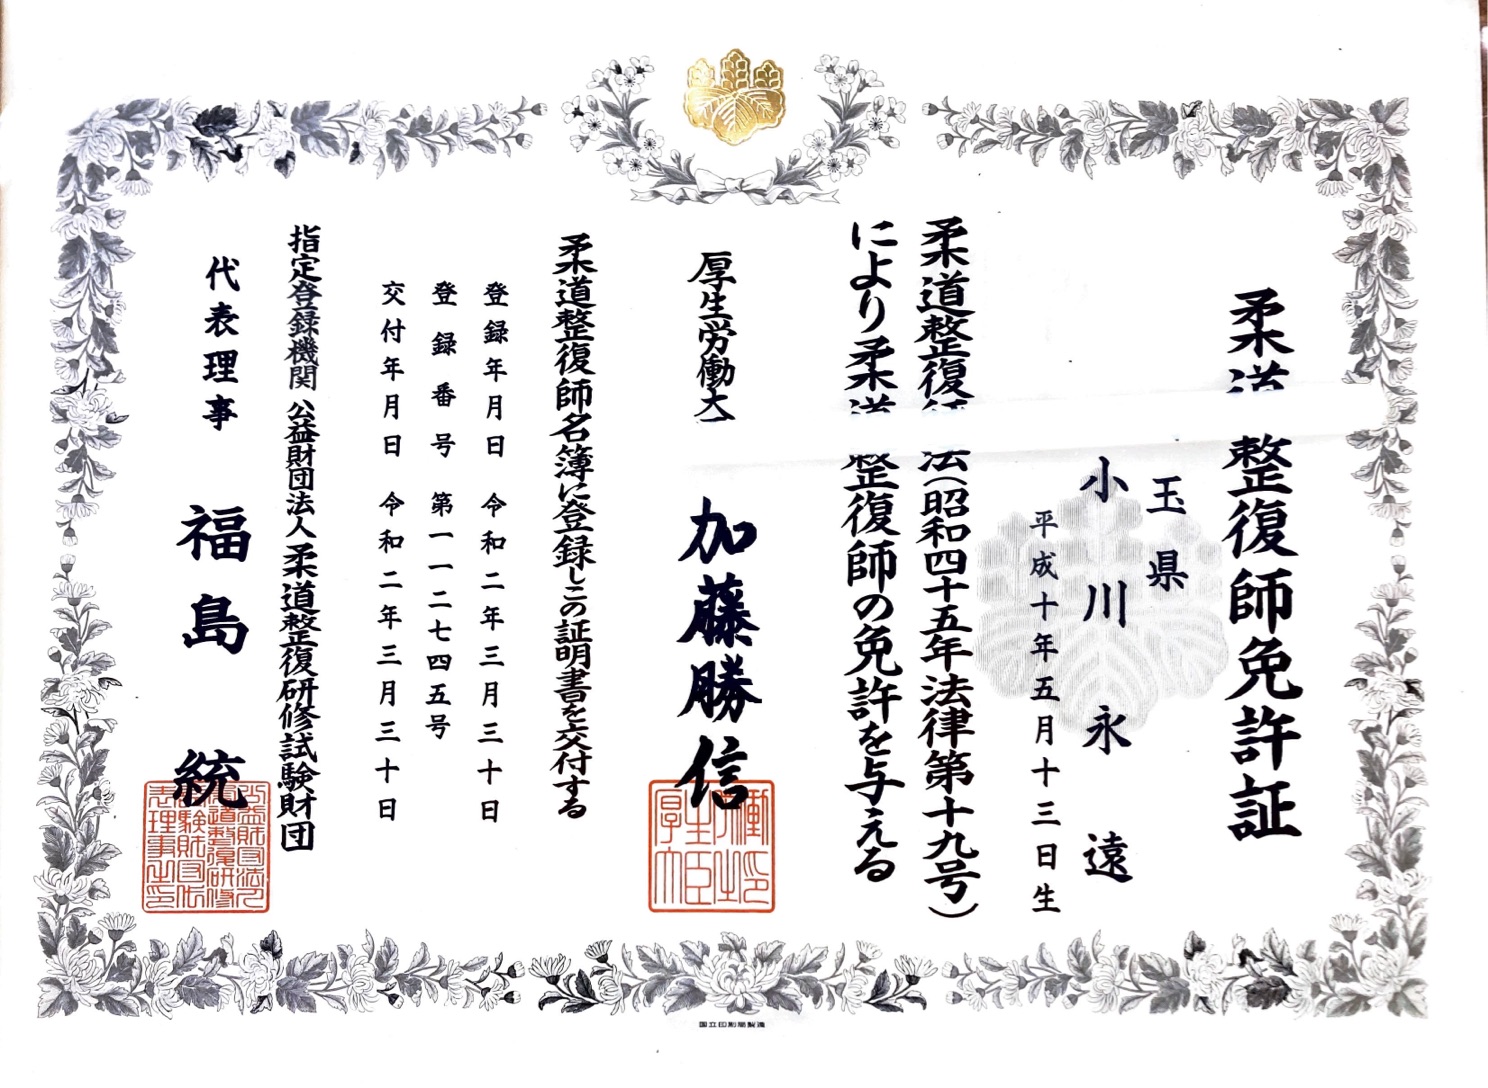 柔道整復師免許証
玉県
小川永遠
平成十年五月十三日生
柔道整復師法(昭和四十五年法律第十九号)
により柔道整復師の免許を与える
厚生労働大 加藤勝信
柔道整復師名簿に登録しこの証明書を交付する
登録年月日 令和二年三月三十日
登録番号 第一一二七四五号
交付年月日 令和二年三月三十日
指定登録機関 公益財団法人柔道整復研修試験財団
代表理事 福島統
国立印刷局製造